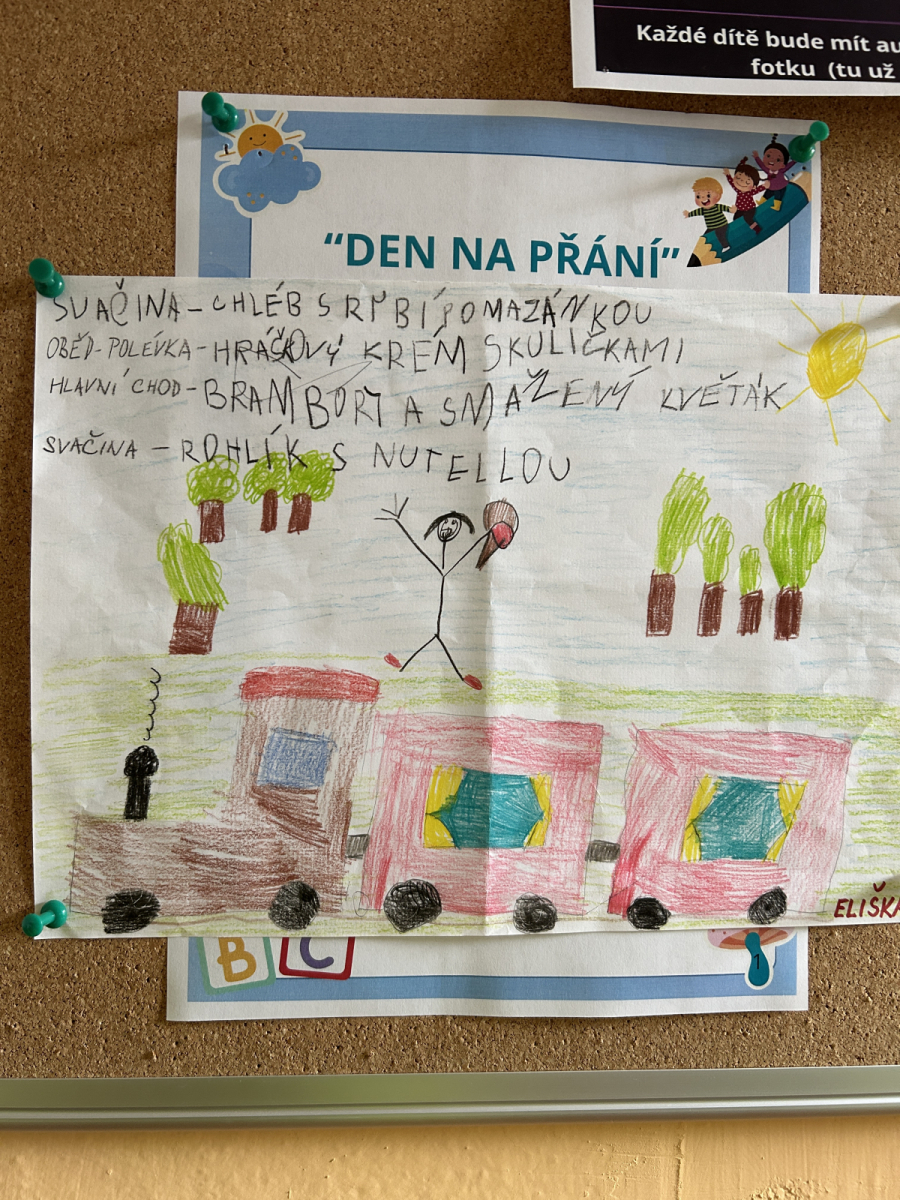 Každé dítě bude mít au
fotku (tu už
“DEN NA PŘÁNÍ”
SVAČINA – CHLÉB S RYBÍ POMAZÁNKOU
OBĚD - POLÉVKA - HRÁŠKOVÝ KRÉM SKULIČKAMI
HLAVNÍ CHOD - BRAMBORY A SMAŽENÝ KVĚŤÁK
SVAČINA – ROHLÍK S NUTELLOU
ELIŠKA
B C
1